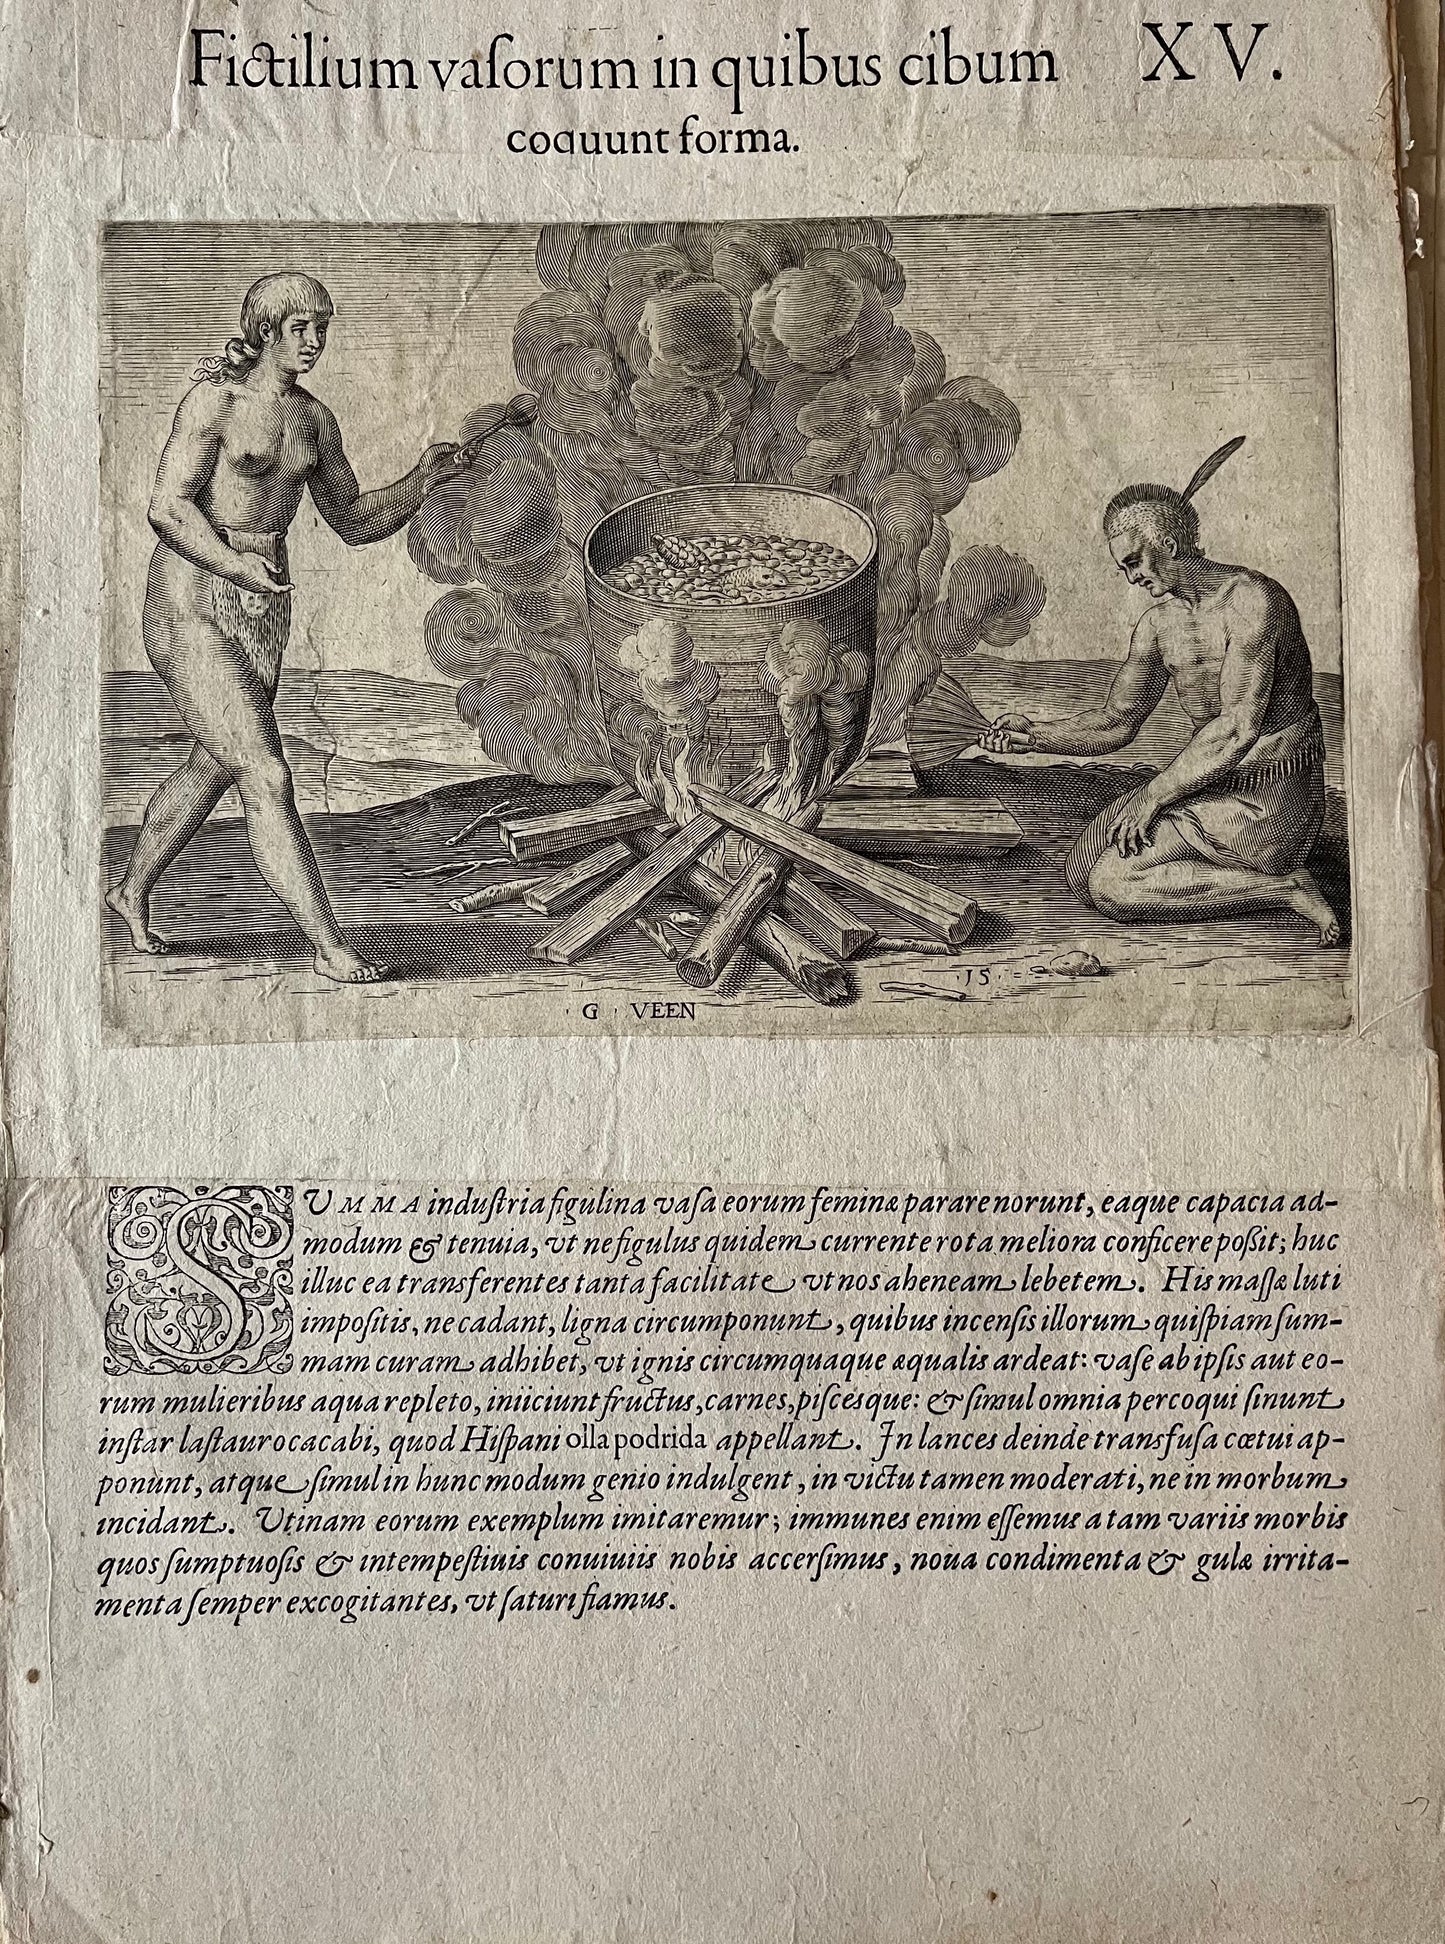 Fictilium vaſorum in quibus cibum XV.
coquunt forma.
·JS·
·G· VEEN
SUMMA induſtria figulina vaſa eorum feminæ parare norunt, eaque capacia ad-
modum & tenuia, vt ne figulus quidem currente rota meliora conficere poßit; huc
illuc ea transferentes tanta facilitate vt nos aheneam lebetem. His maſſæ luti
impoſitis, ne cadant, ligna circumponunt, quibus incenſis illorum quiſpiam ſum-
mam curam adhibet, vt ignis circumquaque æqualis ardeat: vaſe ab ipſis aut eo-
rum mulieribus aqua repleto, iniiciunt fructus, carnes, piſcesque: & ſimul omnia percoqui ſinunt
inſtar laſtaurocacabi, quod Hiſpani olla podrida appellant. In lances deinde transfuſa cœtui ap-
ponunt, atque ſimul in hunc modum genio indulgent, in victu tamen moderati, ne in morbum
incidant. Utinam eorum exemplum imitaremur; immunes enim eſſemus a tam variis morbis
quos ſumptuoſis & intempeſtiuis conuiuiis nobis accerſimus, noua condimenta & gulæ irrita-
menta ſemper excogitantes, vt ſaturi fiamus.